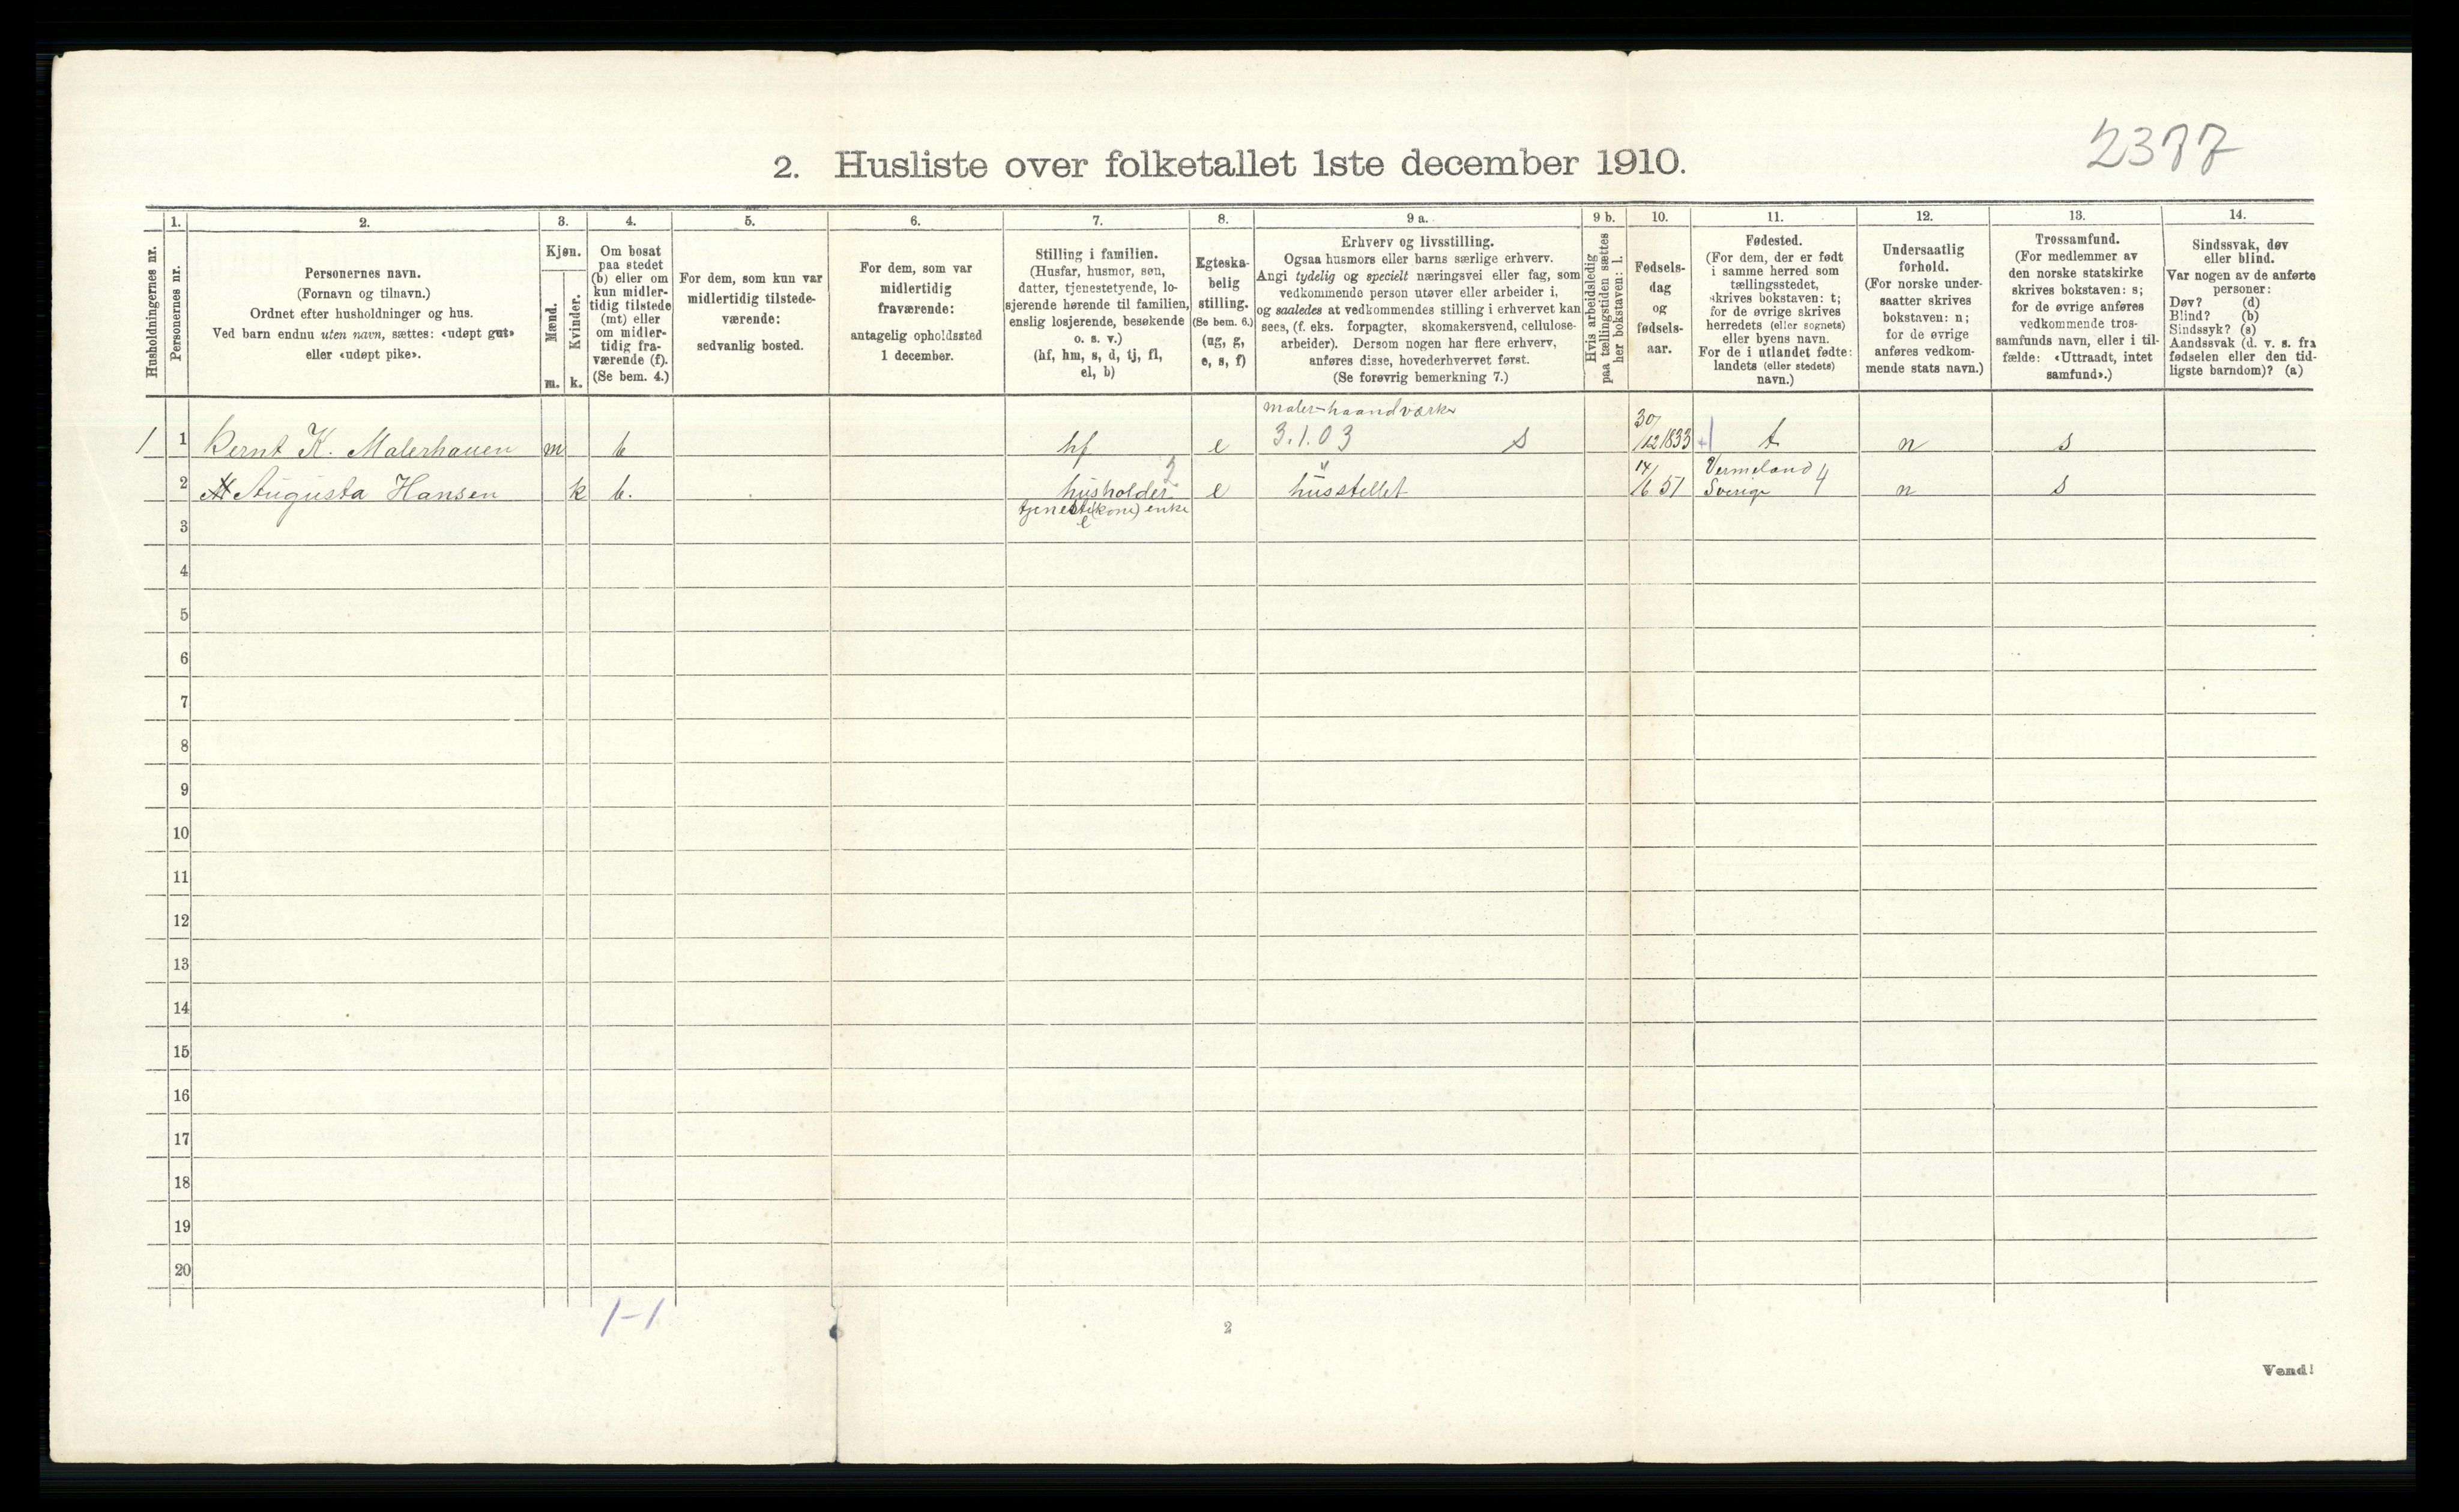 2377
2. Husliste over folketallet 1ste december 1910.
Husholdningernes nr.
1.
Personernes nr.
2.
Personernes navn.
(Fornavn og tilnavn.)
Ordnet efter husholdninger og hus.
Ved barn endnu uten navn, sættes: «udøpt gut»
eller «udøpt pike».
3.
Kjøn.
Mænd.
Kvinder.
m. k.
4.
Om bosat
paa stedet
(b) eller om
kun midler-
tidig tilstede
(mt) eller
om midler-
tidig fra-
værende (f).
(Se bem. 4.)
5.
For dem, som kun var
midlertidig tilstede-
værende:
sedvanlig bosted.
6.
For dem, som var
midlertidig
fraværende:
antagelig opholdssted
1 december.
7.
Stilling i familien.
(Husfar, husmor, søn,
datter, tjenestetyende, lo-
sjerende hørende til familien,
enslig losjerende, besøkende
o. s. v.)
(hf, hm, s, d, tj, fl,
el, b)
8.
Egteska-
belig
stilling.
(Se bem. 6.)
(ug, g,
e, s, f)
9 a.
Erhverv og livsstilling.
Ogsaa husmors eller barns særlige erhverv.
Angi tydelig og specielt næringsvei eller fag, som
vedkommende person utøver eller arbeider i,
og saaledes at vedkommendes stilling i erhvervet kan
sees, (f. eks. forpagter, skomakersvend, cellulose-
arbeider). Dersom nogen har flere erhverv,
anføres disse, hovederhvervet først.
(Se forøvrig bemerkning 7.)
9 b.
Hvis arbeidsledig
paa tællingstiden sættes
her bokstaven: l.
10.
Fødsels-
dag
og
fødsels-
aar.
11.
Fødested.
(For dem, der er født
i samme herred som
tællingsstedet,
skrives bokstaven: t;
for de øvrige skrives
herredets (eller sognets)
eller byens navn.
For de i utlandet fødte:
landets (eller stedets)
navn.)
12.
Undersaatlig
forhold.
(For norske under-
saatter skrives
bokstaven: n;
for de øvrige
anføres vedkom-
mende stats navn.)
13.
Trossamfund.
(For medlemmer av
den norske statskirke
skrives bokstaven: s;
for de øvrige anføres
vedkommende tros-
samfunds navn, eller i til-
fælde: «Uttraadt, intet
samfund».)
14.
Sindssvak, døv
eller blind.
Var nogen av de anførte
personer:
Døv? (d)
Blind? (b)
Sindssyk? (s)
Aandssvak (d. v. s. fra
fødselen eller den tid-
ligste barndom)? (a)
maler-haandværker
1 1 Bernt K. Malerhauen m b hf e 3.1.03 s 30/12 1833 +1 t n s
2 Augusta Hansen k b. husholder 2 e husstellet 14/6 51 Vermeland Sverige 4 n s
tjeneste (kone) enke
e
3
4
5
6
7
8
9
10
11
12
13
14
15
16
17
18
19
20
1-1
2
Vend!